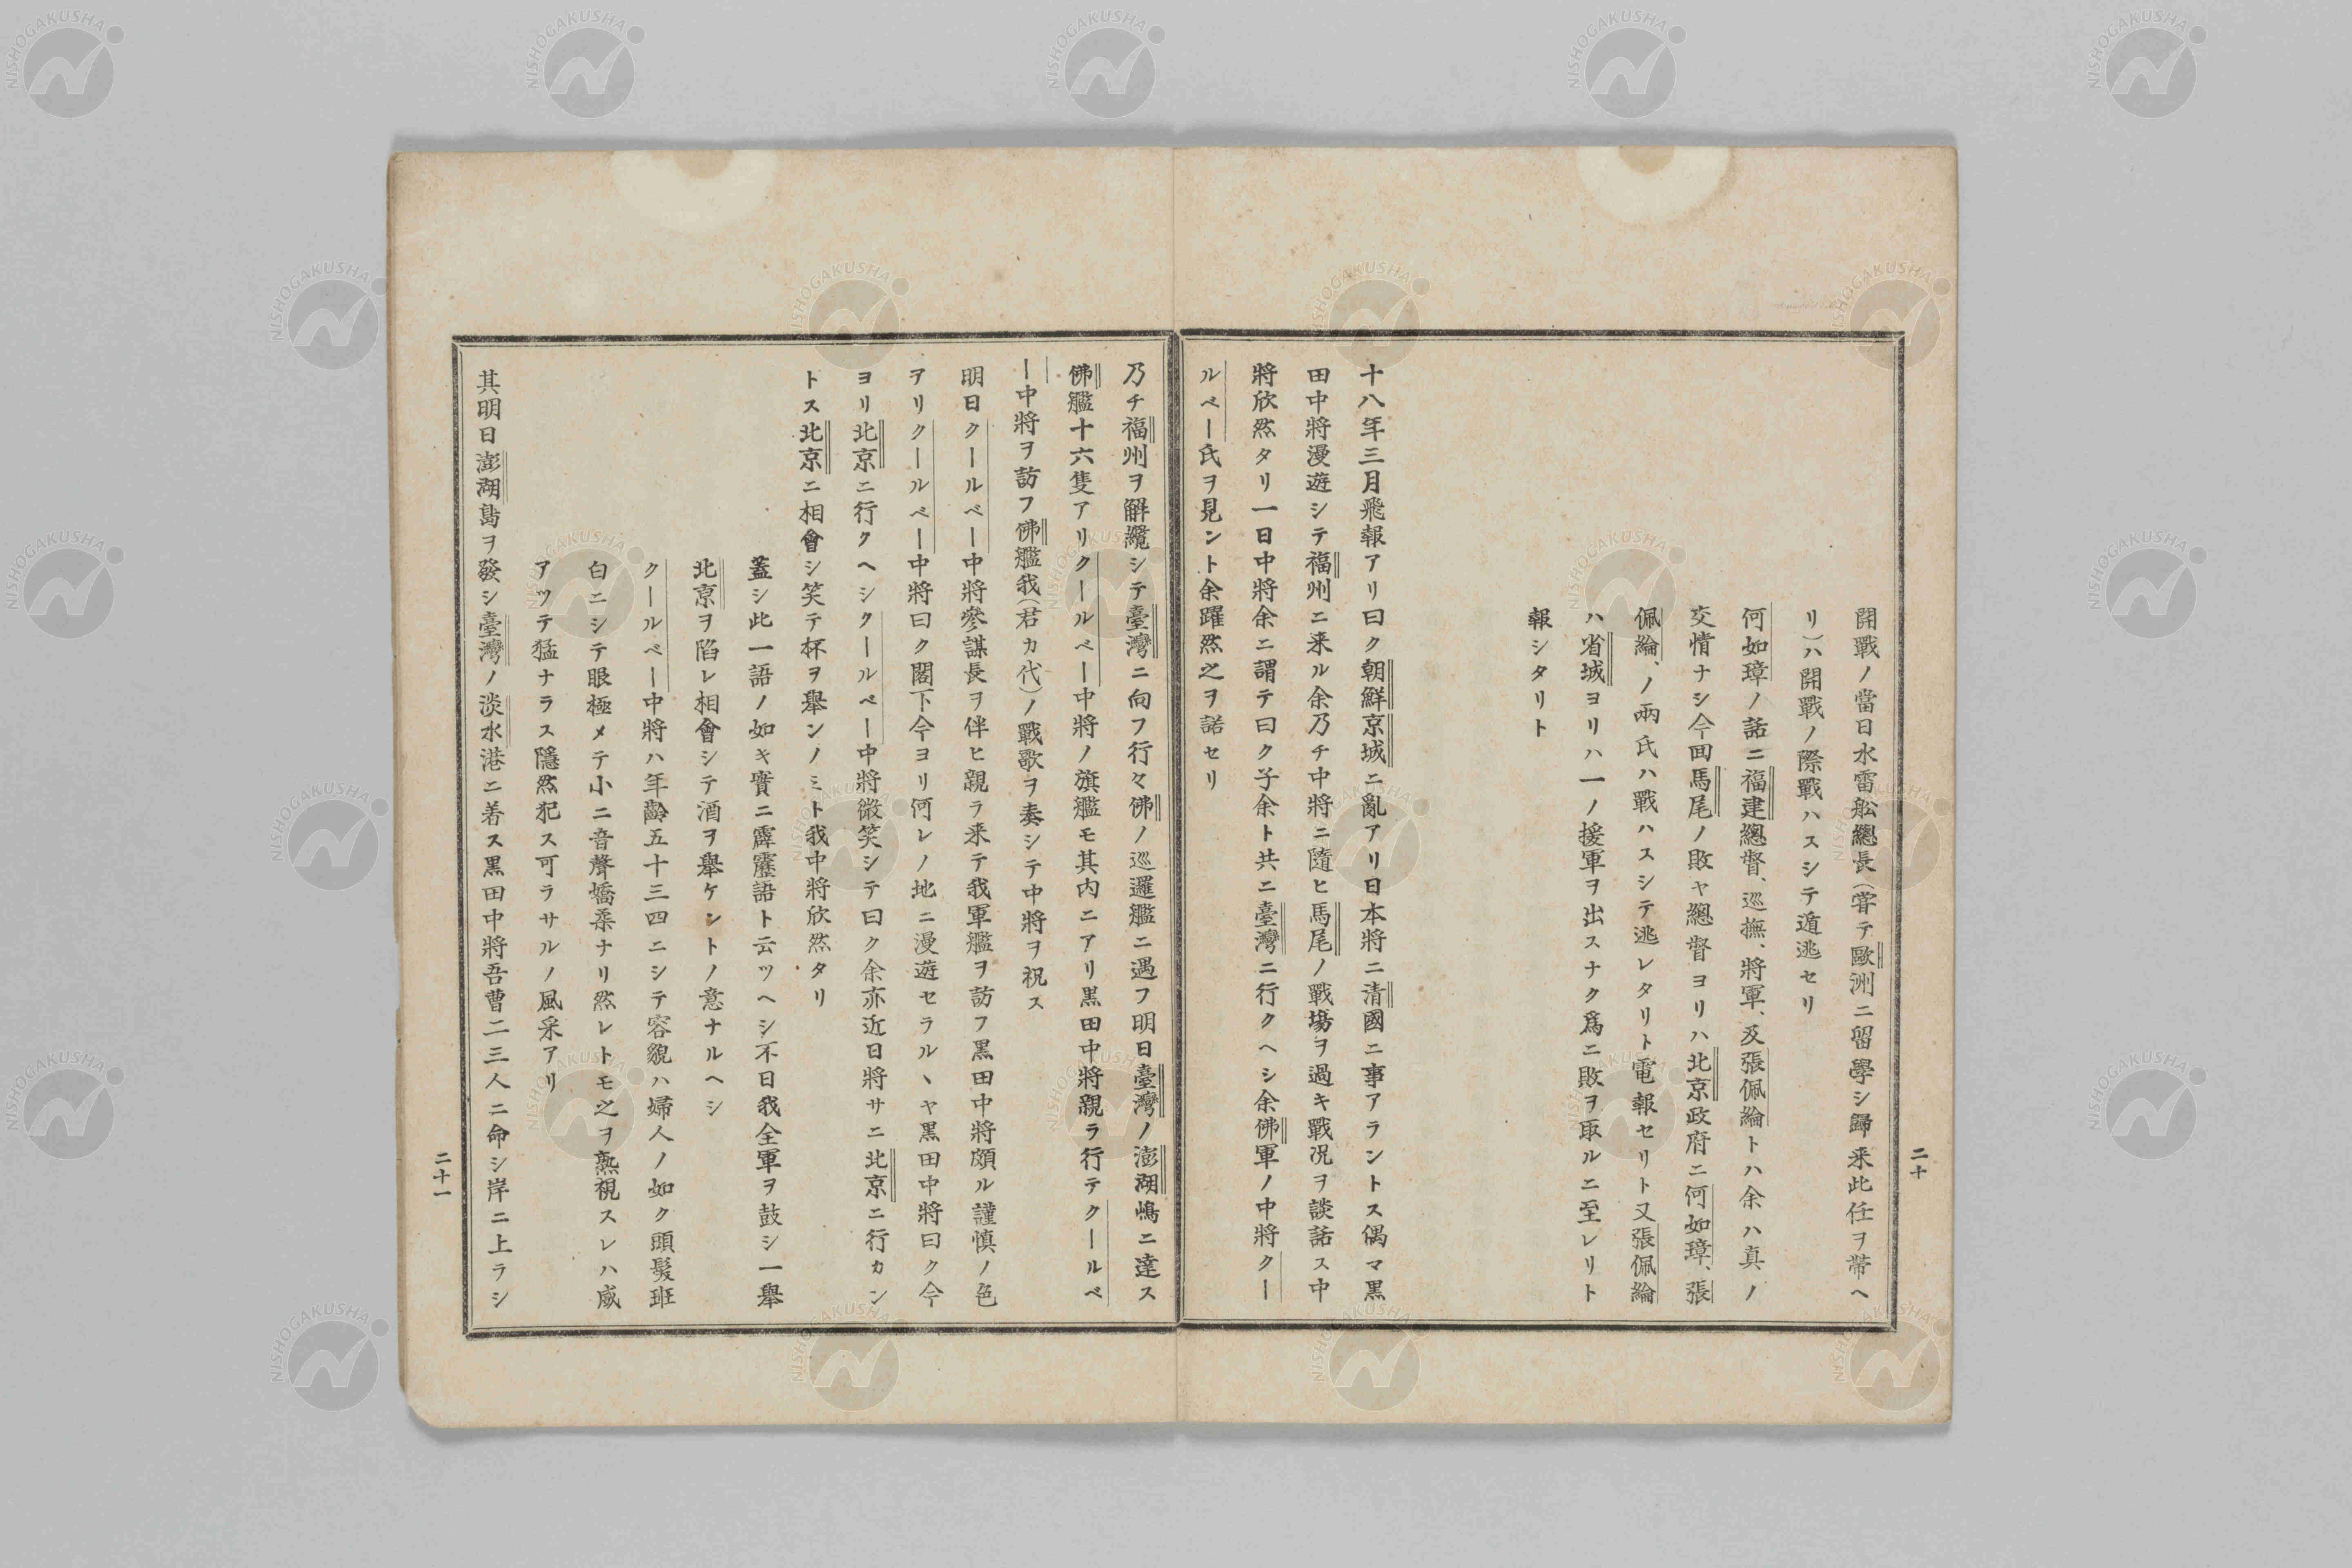 開戰ノ當日水雷舩總長(甞テ歐洲ニ留學シ歸来此任ヲ帶ヘ
リ)ハ開戰ノ際戰ハスシテ遁逃セリ
何如璋ノ話ニ福建總督、巡撫、將軍、及張佩綸トハ余ハ真ノ
交情ナシ今回馬尾ノ敗ヤ總督ヨリハ北京政府ニ何如璋、張
佩綸、ノ兩氏ハ戰ハスシテ逃レタリト電報セリト又張佩綸
ハ省城ヨリハ一ノ援軍ヲ出スナク爲ニ敗ヲ取ルニ至レリト
報シタリト
十八年三月飛報アリ曰ク朝鮮京城ニ亂アリ日本將ニ清國ニ事アラントス偶マ黒
田中將漫遊シテ福州ニ来ル余乃チ中將ニ隨ヒ馬尾ノ戰塲ヲ過キ戰况ヲ談話ス中
將欣然タリ一日中將余ニ謂テ曰ク子余ト共ニ臺灣ニ行クヘシ余佛軍ノ中將クー
ルベー氏ヲ見ント余躍然之ヲ諾セリ
二十
乃チ福州ヲ解纜シテ臺灣ニ向フ行々佛ノ巡邏艦ニ遇フ明日臺灣ノ澎湖嶋ニ達ス
佛艦十六隻アリクールベー中將ノ旗艦モ其内ニアリ黒田中將親ラ行テクールベ
ー中將ヲ訪フ佛艦我(君カ代)ノ戰歌ヲ奏シテ中將ヲ祝ス
明日クールベー中將參謀長ヲ伴ヒ親ラ来テ我軍艦ヲ訪フ黒田中將頗ル謹慎ノ色
ヲリクールベー中將曰ク閣下今ヨリ何レノ地ニ漫遊セラルヽヤ黒田中將曰ク今
ヨリ北京ニ行クヘシクールベー中將微笑シテ曰ク余亦近日將サニ北京ニ行カン
トス北京ニ相會シ笑テ杯ヲ擧ンノミト我中將欣然タリ
蓋シ此一語ノ如キ實ニ霹靂語ト云ツヘシ不日我全軍ヲ鼓シ一擧
北京ヲ陷レ相會シテ酒ヲ擧ケントノ意ナルヘシ
クールベー中將ハ年齡五十三四ニシテ容貌ハ婦人ノ如ク頭髮班
白ニシテ眼極メテ小ニ音聲嬌柔ナリ然レトモ之ヲ熟視スレハ威
アツテ猛ナラス隱然犯ス可ラサルノ風采アリ
其明日澎湖島ヲ發シ臺灣ノ淡水港ニ着ス黒田中將吾曹二三人ニ命シ岸ニ上ラシ
二十一
NISHOGAKUSHA